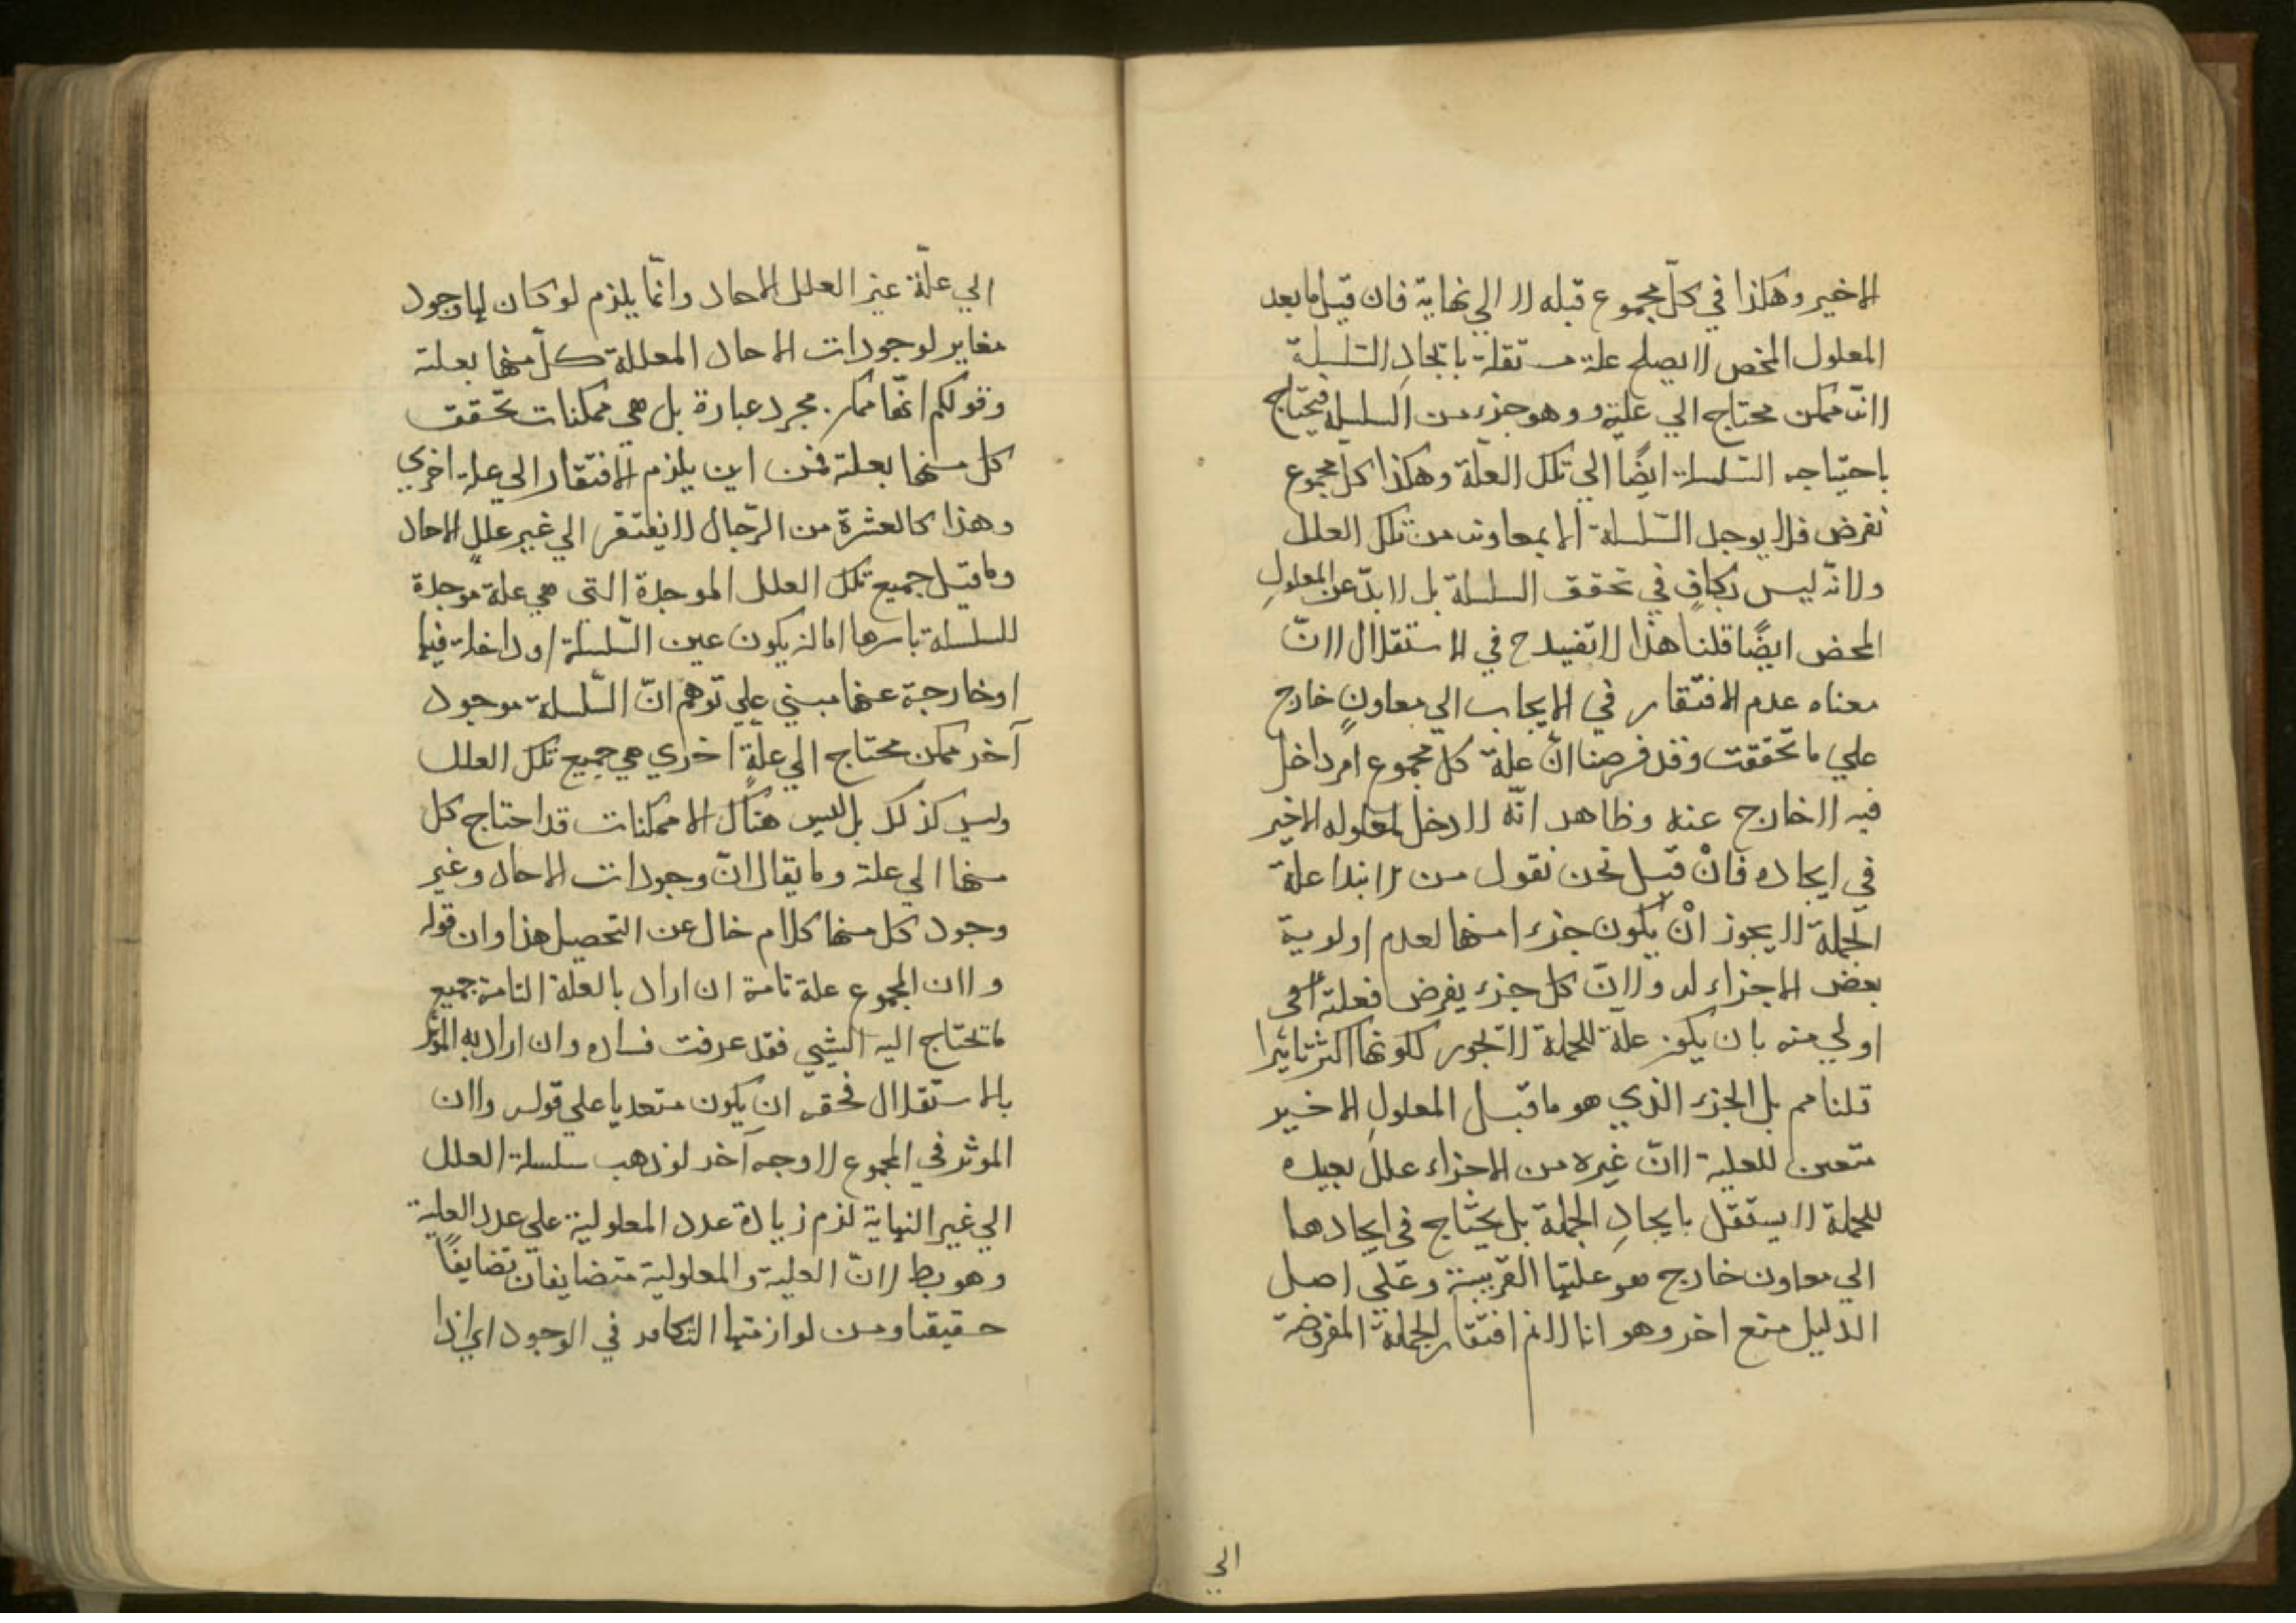 الاخير وهكذا في كلّ مجموع قبله لا الي نهاية فان قيل ما بعد
المعلول المحض لا يصلح علة مستقلة بايجادِ السّلسلة
لانّه ممكن محتاج الي علّته وهو جزء من السلسلة فيحتاج
باحتياجه السّلسلة ايضًا الي تلك العلّة وهكذا كلّ مجموع
نفرض فلا يوجد السّلسلة الا بمعاونه من تلك العلل
ولانّه ليس بكافٍ في تحقق السلسلة بل لا بدّ عن المعلولِ
المحض ايضًا قلنا هذا لا تقيدح في الاستقلال لانّ
معناه عدم الافتقار في الايجاب الي معاونٍ خارج
علي ما تحققت وقد فرضنا انّ علة كلّ مجموع امر داخل
فيه لا خارج عنه وظاهر انّه لا دخل لمعلوله الاخير
في ايجاده فانْ قيل نحن نقول من الابتدا علّة
الجملة لا يجوز انْ يكون جزءا منها لعدم اولوية
بعض الاجزاء له ولانّ كل جزء يفرض فعلته
اولي منه بان يكون علّة للجملة لا تجوز لكونها اكثر تاثيرا
قلنا مم بل الجزء الذي هو ما قبل المعلولِ الاخير
متعين للعلية لانّ غيره من الاجزاء عللٌ بعيده
للجملة لا يستقل بايجادِ الجملة بل يحتاج في ايجادها
الي معاون خارج هو علتها القريبة وعلي اصل
الدليل منع اخر وهو انا لا نم افتقار الجملة المفروضة
الي
الي علّة غير العلل الاحاد وانّما يلزم لو كان لها وجود
مغاير لوجودات الاحاد المعللة كلّ منها بعلته
وقولكم انّها ممكن مجرد عبارة بل هي ممكنات تحقّقت
كل منها بعلته فمن اين يلزم الافتقار الي علة اخري
وهذا كالعشرة من الرّجال لا يفتقر الي غير علل الاحاد
وما قيل جميع تلك العلل الموجدة التي هي علة موجدة
للسلسلة باسرها اما ان يكون عين السّلسلة او داخلة فيها
او خارجة عنها مبني علي توهّم انّ السّلسلة موجود
آخر ممكن محتاج الي علّةٍ اخري هي جميع تلك العلل
وليس كذلك بل ليس هناك الا ممكنات قد احتاج كل
منها الي علته وما يقال انّ وجودات الاحاد وغير
وجود كل منها كلام خال عن التحصيل هذا وان قوله
ولان المجموع علة تامة ان اراد بالعلة التامة جميع
ما تحتاج اليه الشيي فقد عرفت فساده وان اراد به المؤثر
بالاستقلال فحقه ان يكون متعديا علي قوله ولان
الموثر في المجموع لا وجه آخر لو ذهب سلسلة العلل
الي غير النهاية لزم زيادة عدد المعلولية علي عدد العلية
وهو بط لانّ العلية والمعلولية متضايفان تضايفًا
حقيقيا ومن لوازمها التكافؤ في الوجود اي اذا